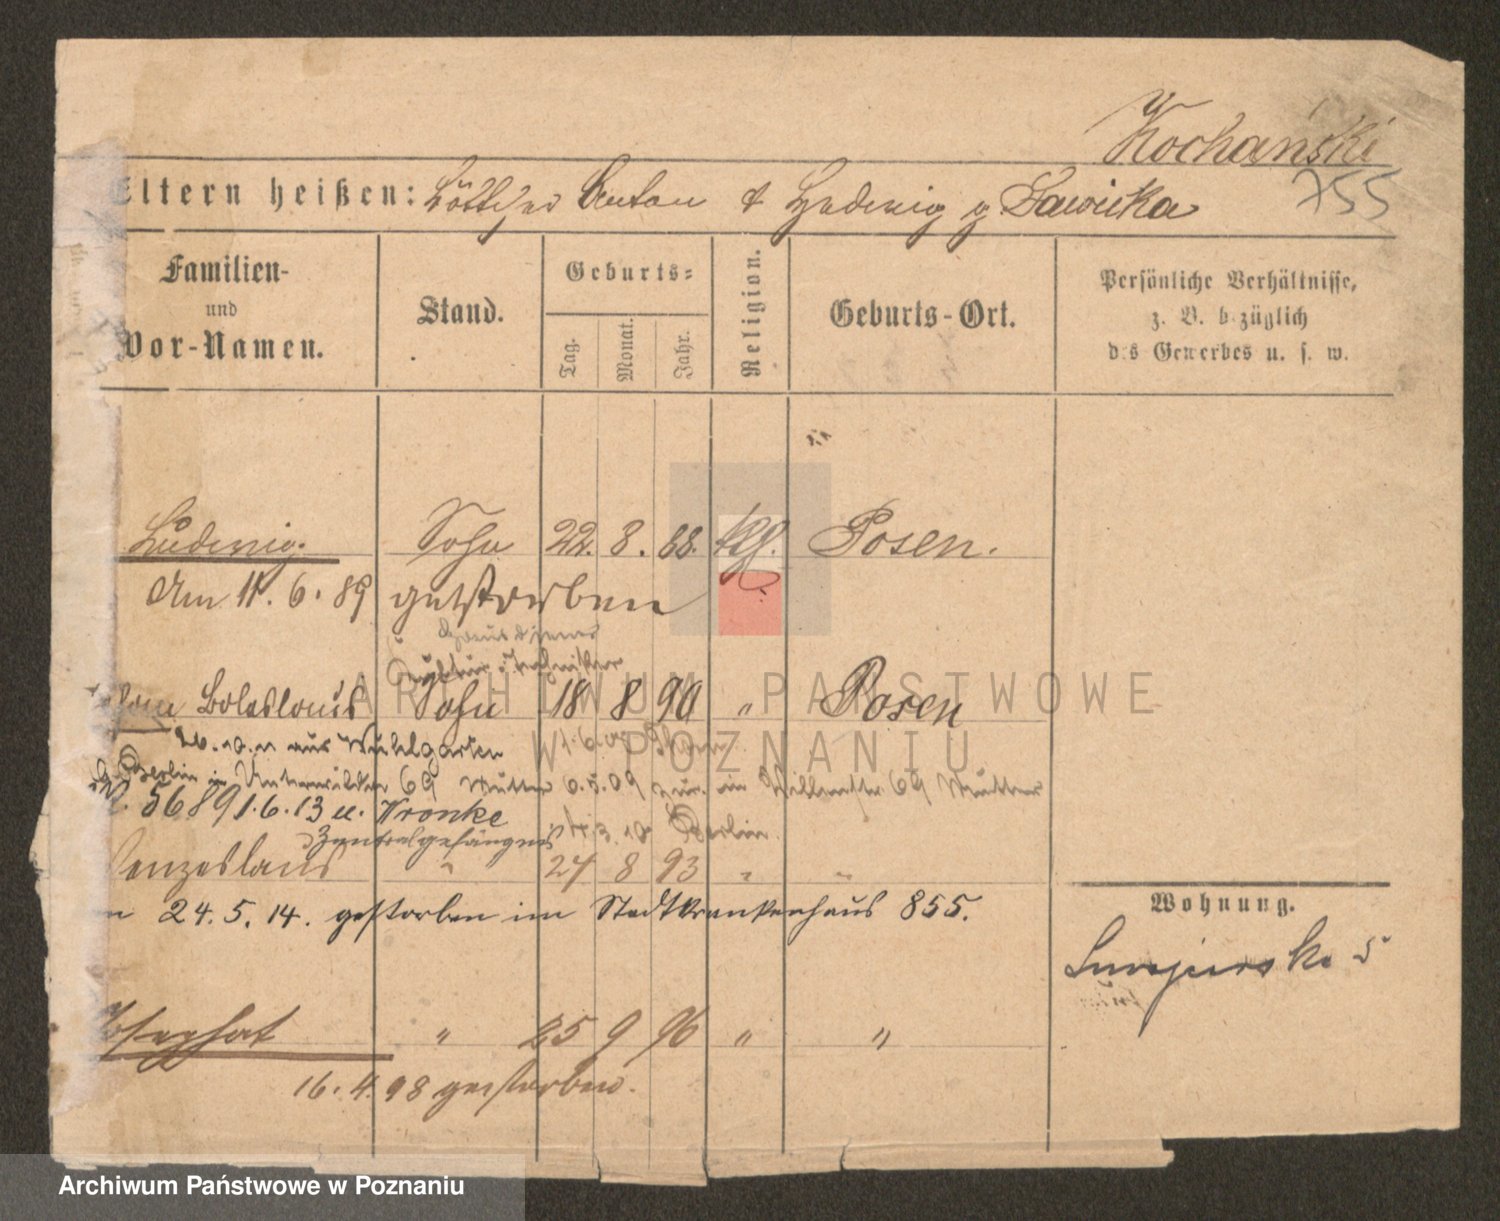 Kochański
755
Eltern heißen: Böttcher Anton & Hedwig g Sawicka
Familien- und Vor-Namen.
Stand.
Geburts:
Tag.
Monat.
Jahr.
Religion.
Geburts-Ort.
Persönliche Verhältnisse, z. B. bezüglich des Gewerbes u. s. w.
Ludwig. Sohn 22. 8. 88. kth. Posen.
Am 11. 6. 89 gestorben
Hausdiener
Techniker
Boleslaus Sohn 18 8 90 " Posen
aus Wuhlgarten
Berlin 69 Mutter 6.5.09 zur. in 69 Mutter
5689 1.6.13 u. Wronke
Zentralgefängnis 3. 10 Berlin.
Wenzeslaus " 27 8 93 " "
24. 5. 14. gestorben im Stadtkrankenhaus 855.
Wohnung.
5
" 25 9 96 " "
16. 4. 98 gestorben.
ARCHIWUM PAŃSTWOWE
W POZNANIU
Archiwum Państwowe w Poznaniu